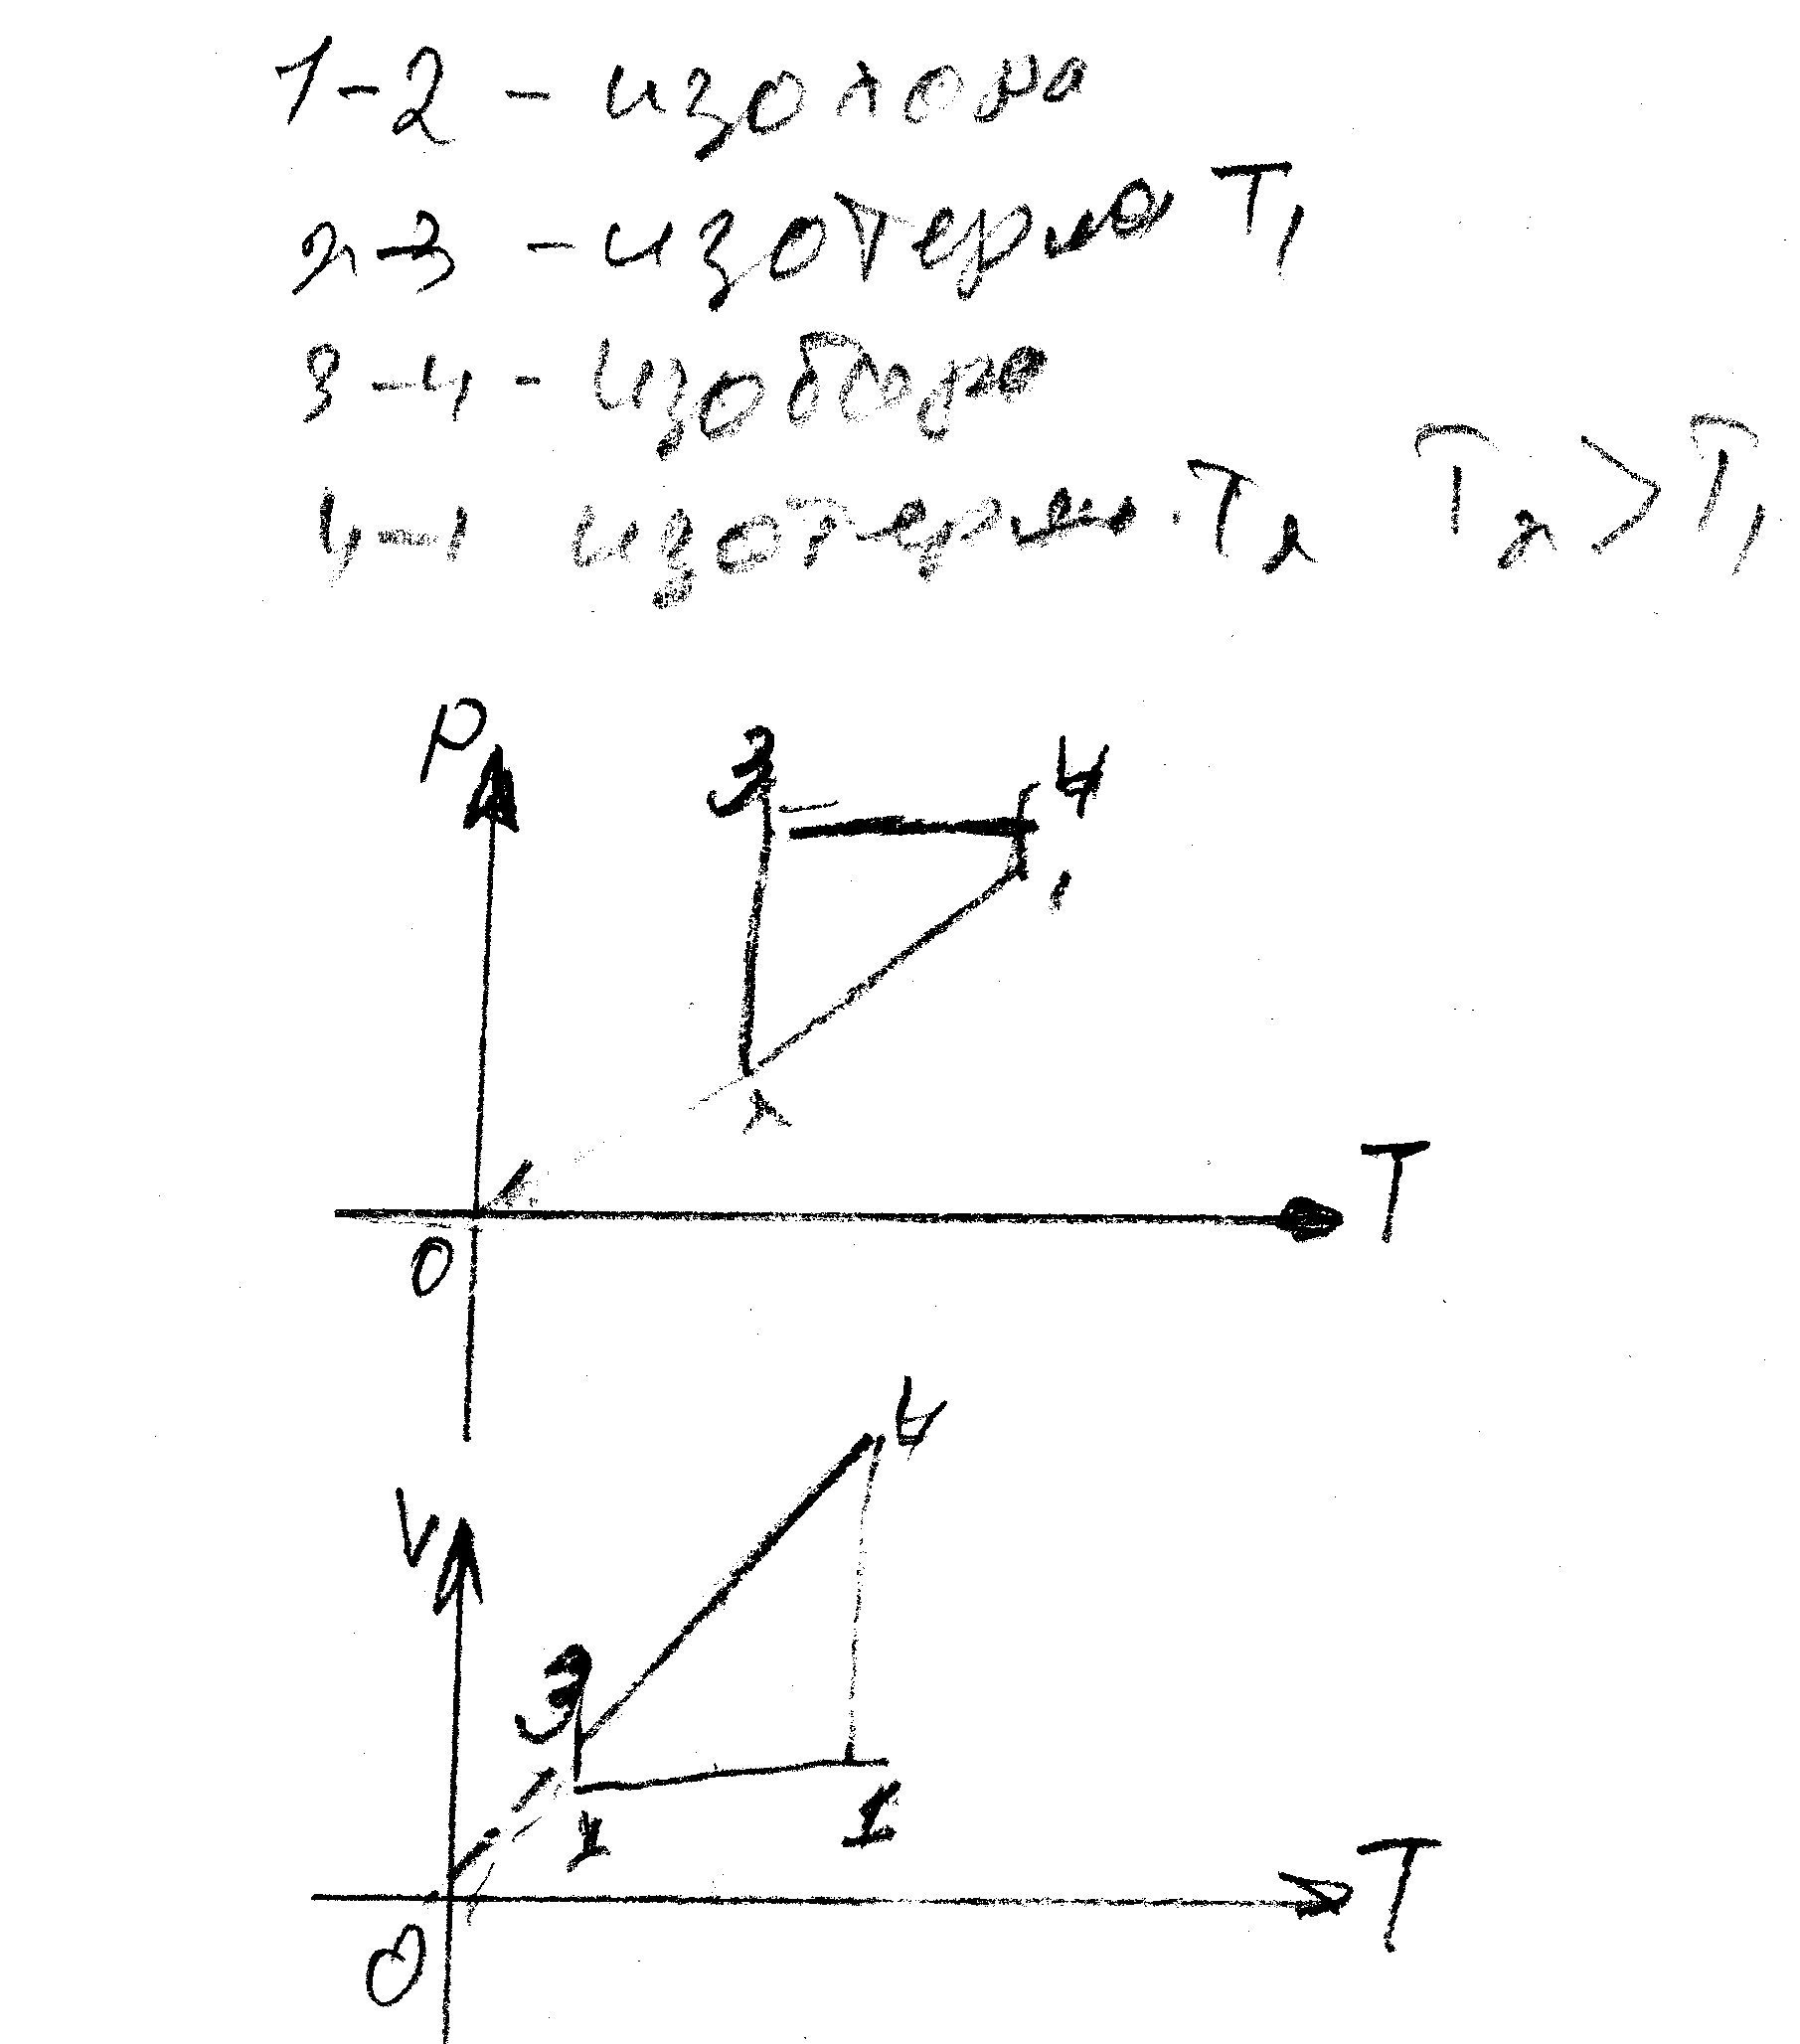 1-2 - изохора
2-3 - изотерма T1
3-4 - изобара
4-1 изотерма T2 T2 > T1
P
3
4
1
2
T
0
4
V
3
2
1
T
0